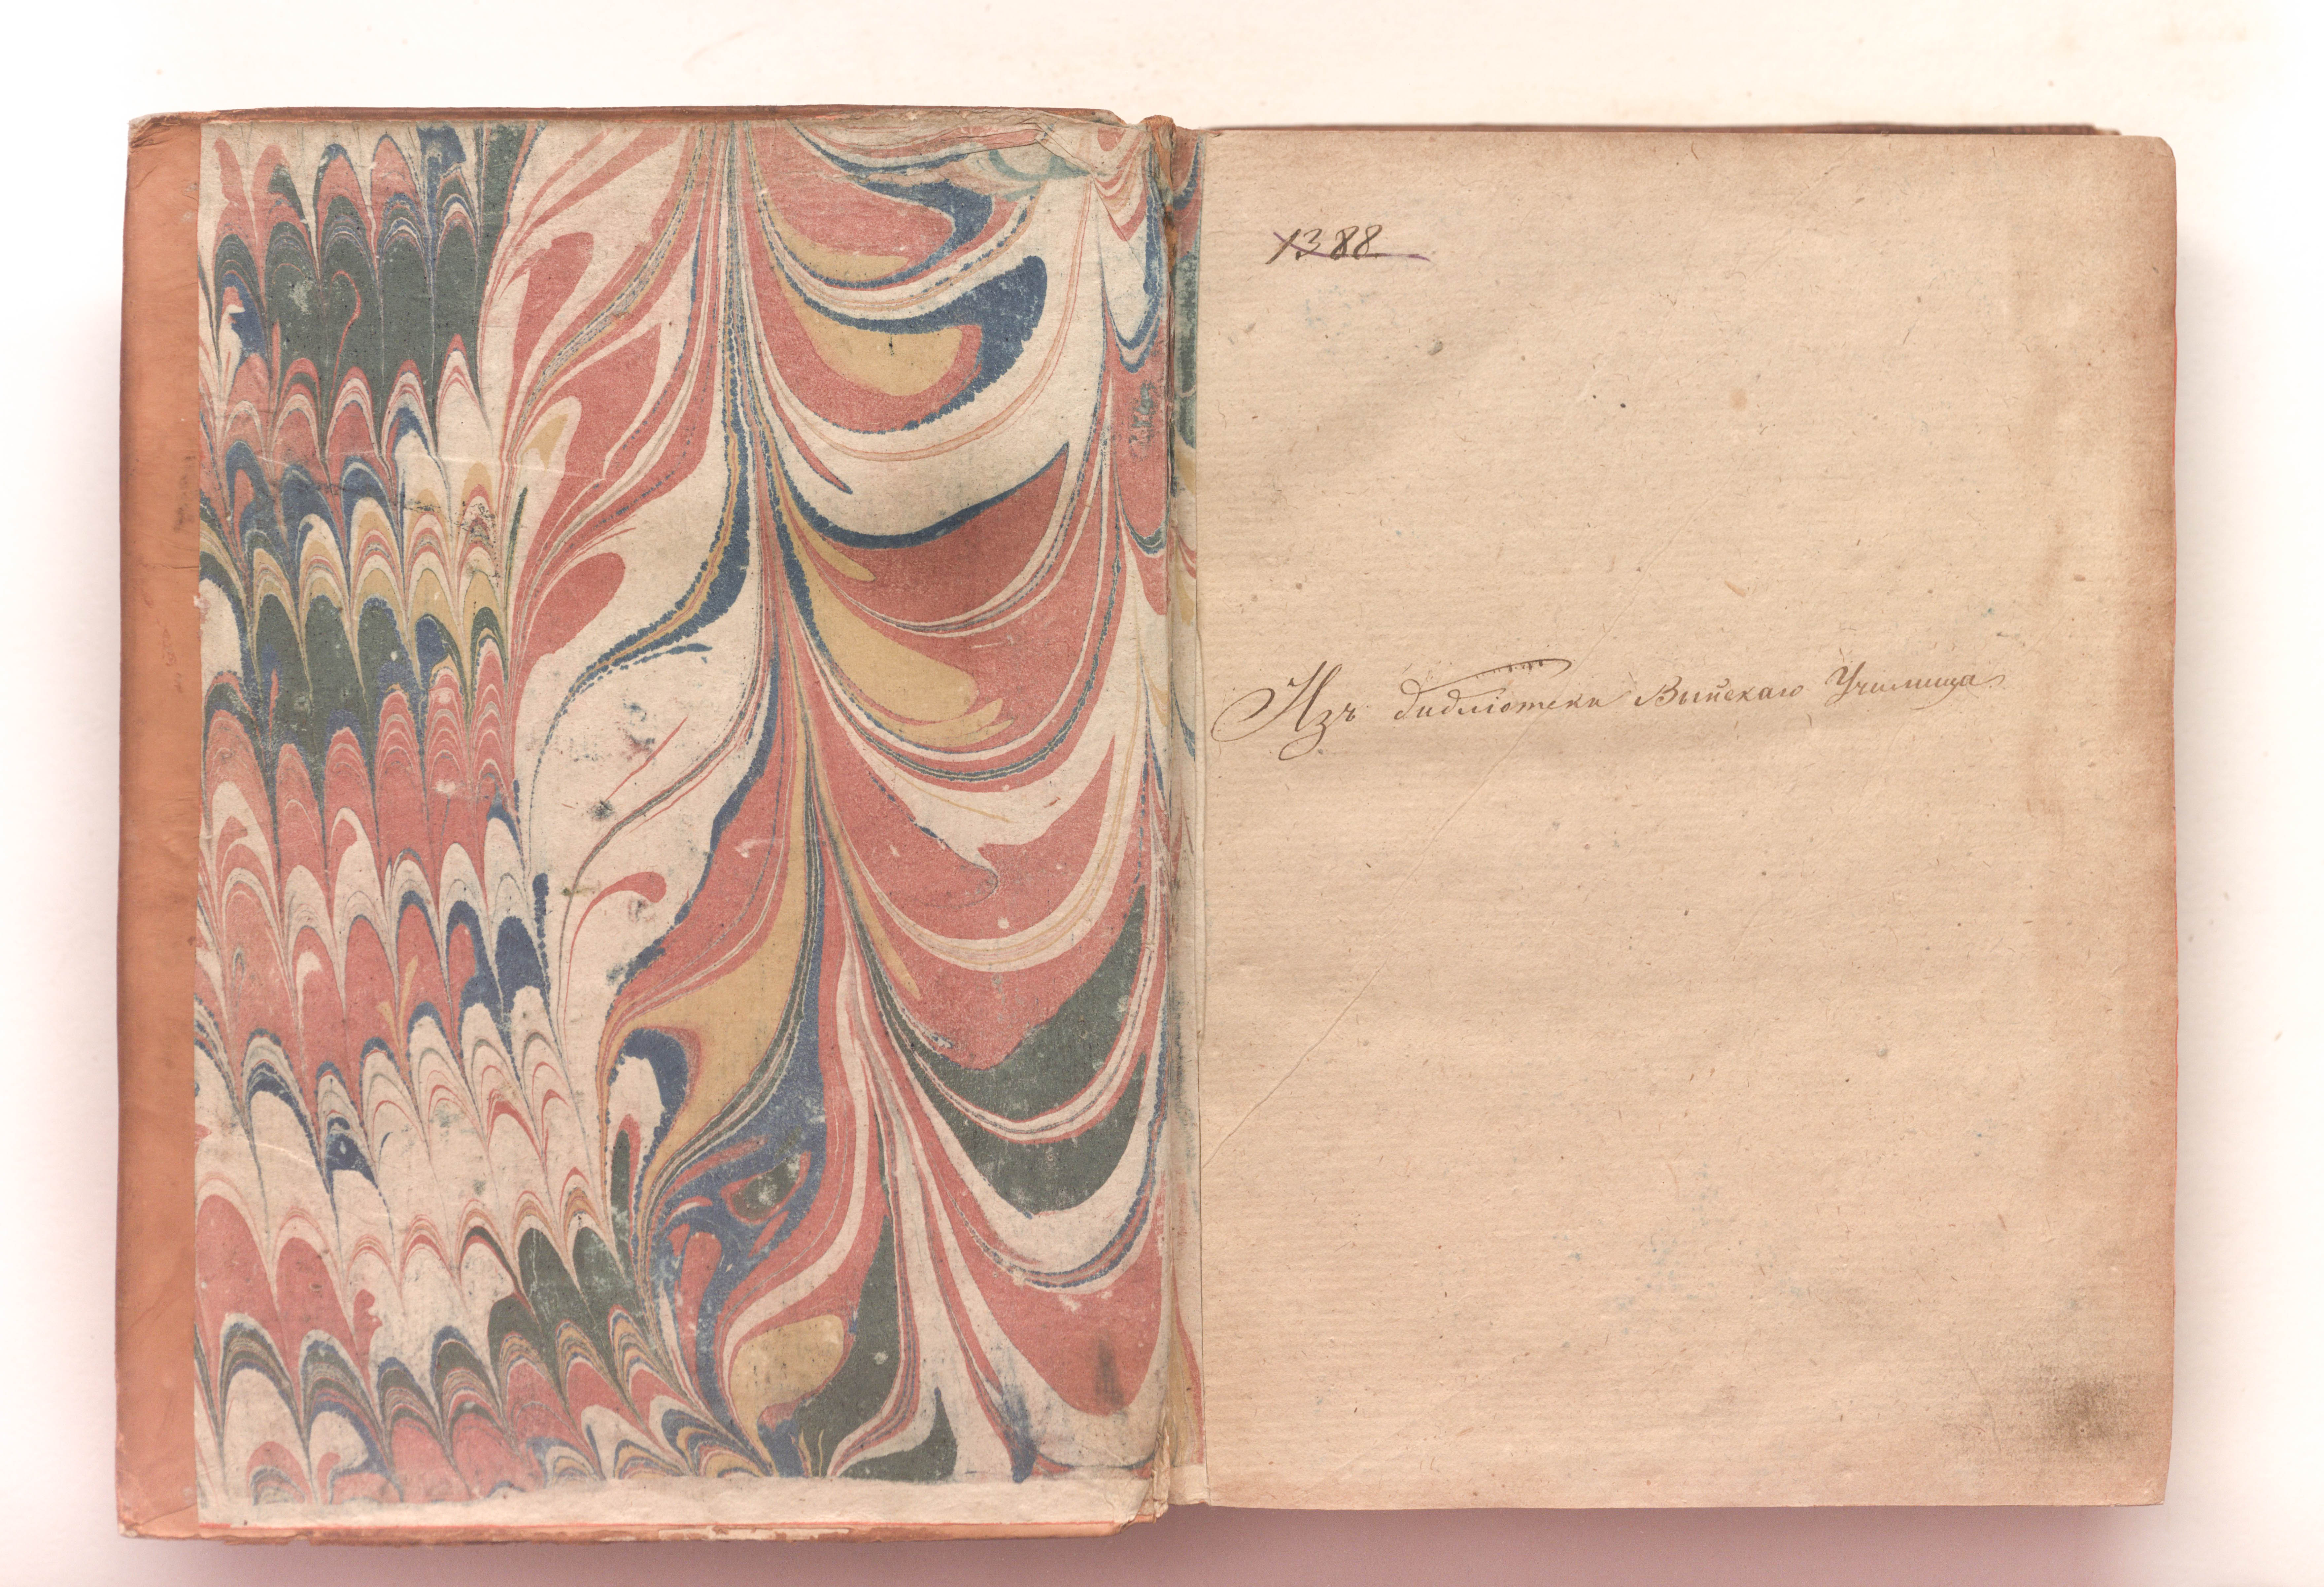 1388
Изъ библіотеки Выйскаго Училища